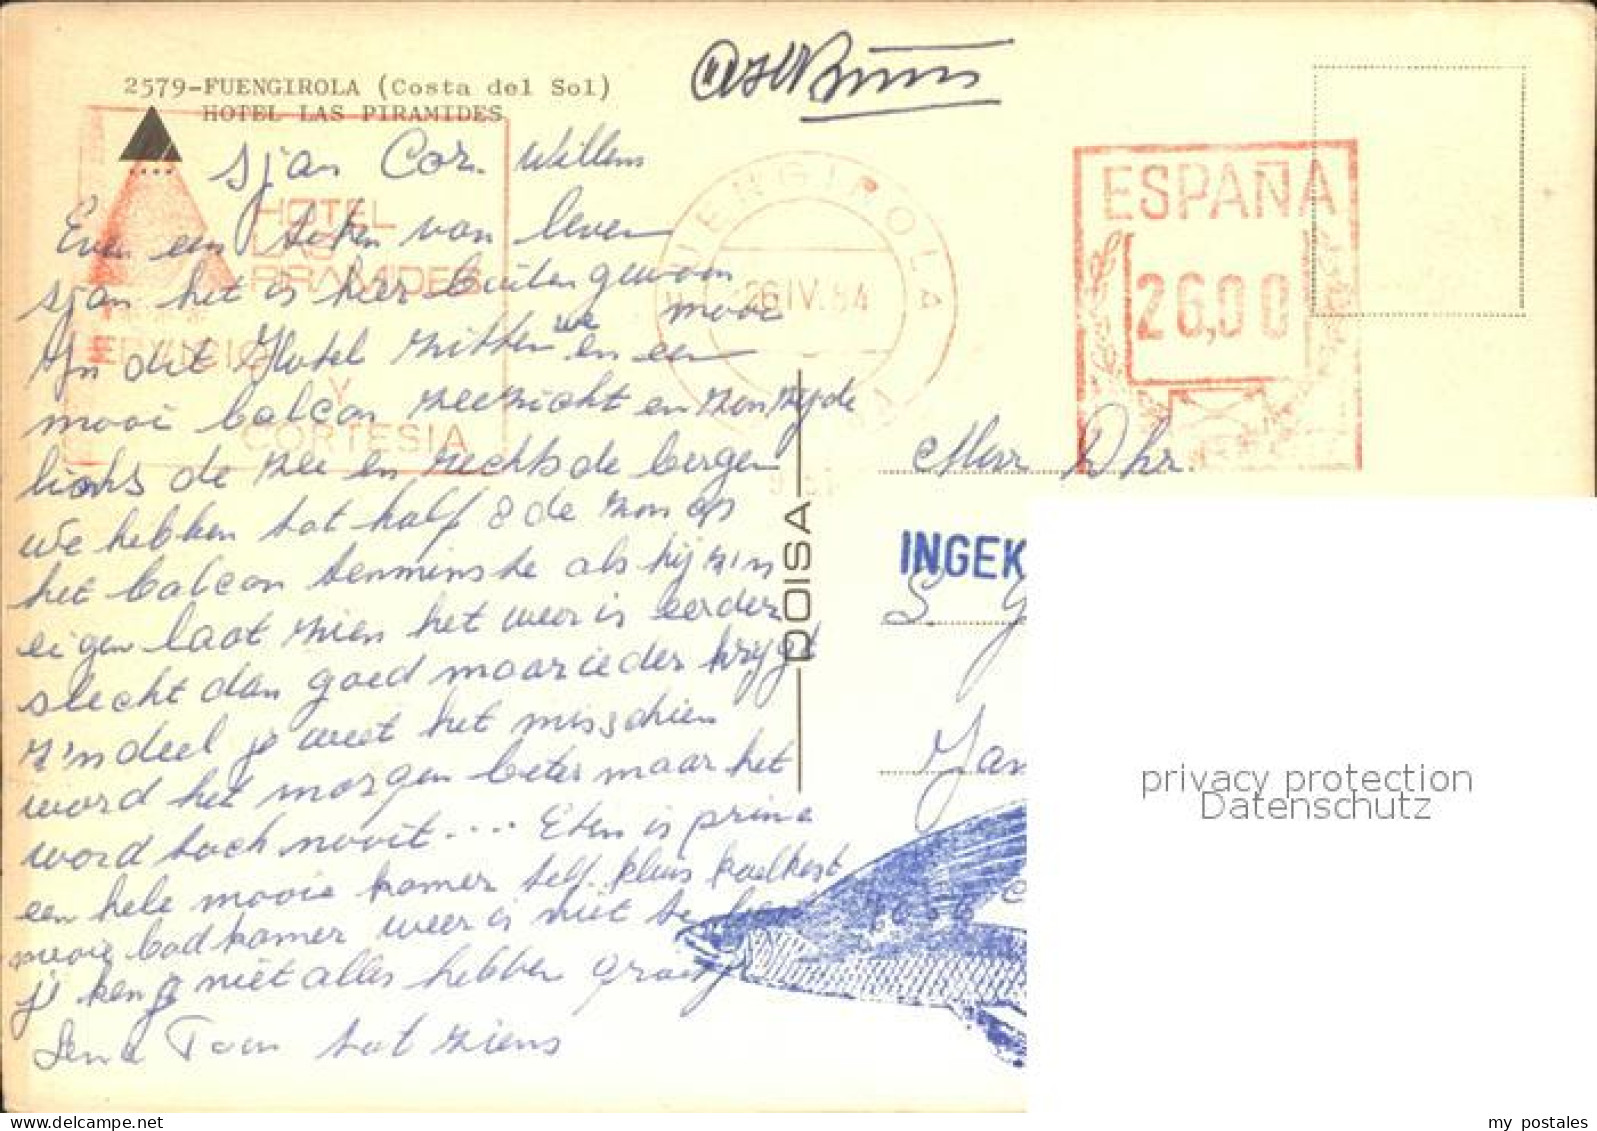 2579-FUENGIROLA (Costa del Sol)
HOTEL LAS PIRAMIDES
HOTEL
LAS
PIRAMIDES
SERVICIO
Y
CORTESIA
FUENGIROLA
26 IV. 84
ESPAÑA
26,00
Sjan Cor. Willem
Even een teken van leven
sjan het is hier buitengewoon
mooi
In dit Hotel zitten we en een
mooi balcon zeezicht en zonzijde
links de zee en rechts de bergen
We hebben tot half 8 de zon op
het balcon tenminste als hij z'n
eigen laat zien het weer is eerder
slecht dan goed maar ieder krijgt
z'n deel je weet het misschien
word het morgen beter maar het
word toch nooit .... Eten is prima
een hele mooie kamer telf. kluis koelkast
mooie badkamer weer is niet te
je kan niet alles hebben groetjes
Lena Toon tot ziens
DOISA
Dhr.
INGEK
S. J
Jan
privacy protection
Datenschutz
my postales